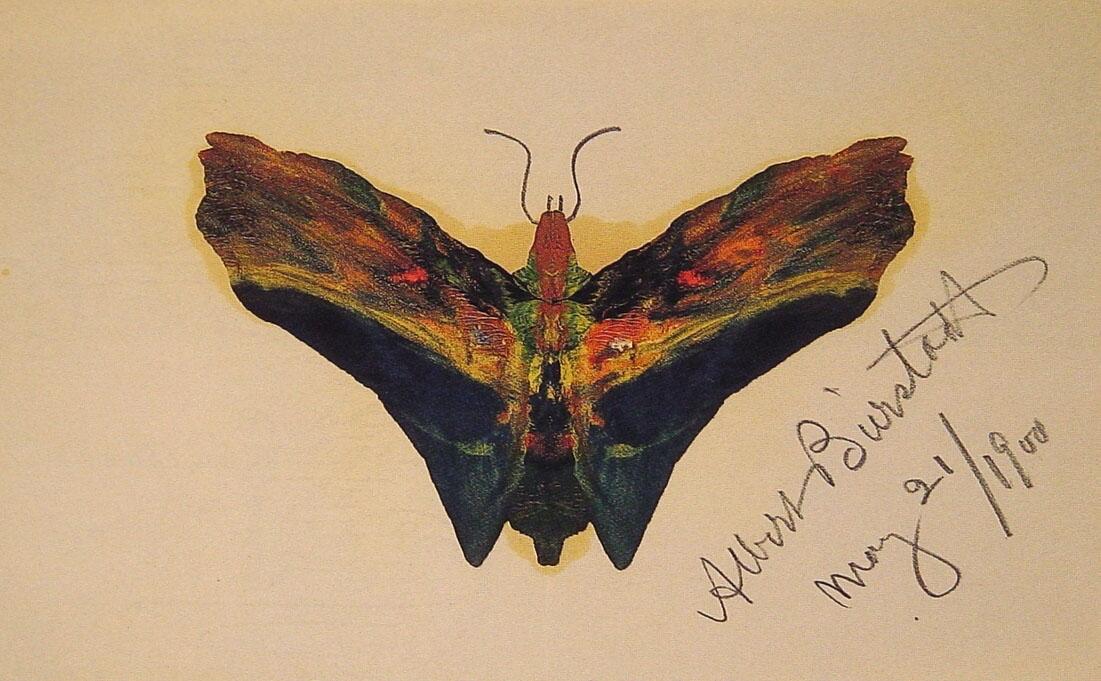 Albert Bierstadt
May 21/1900